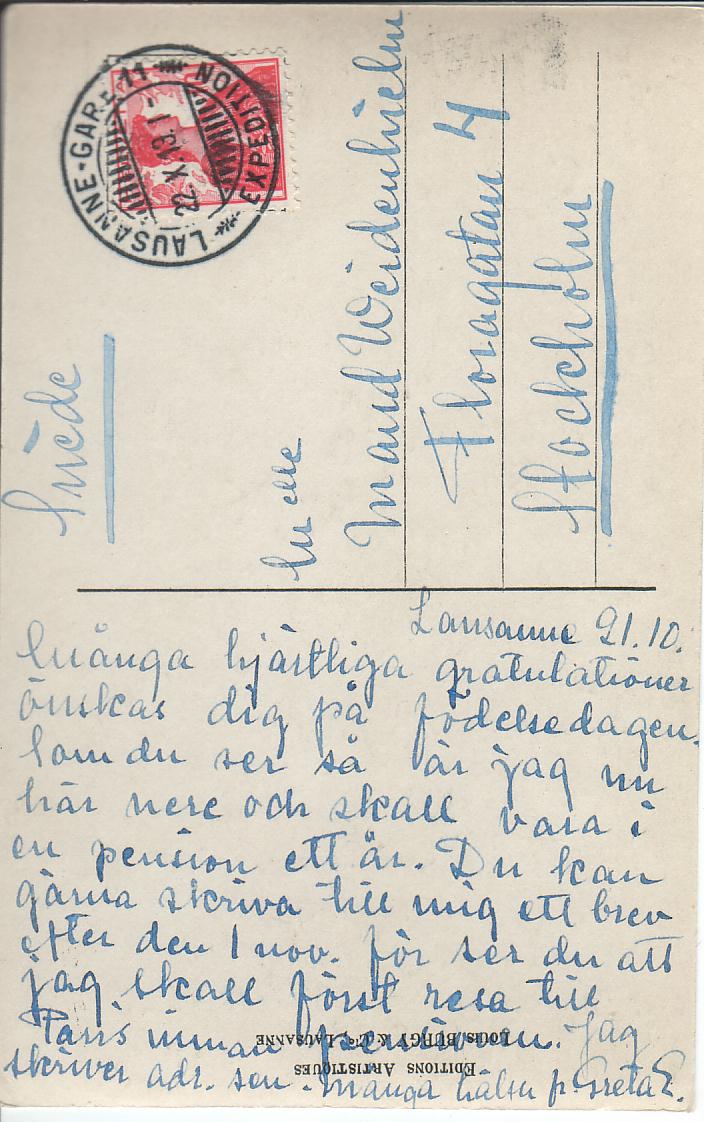 LAUSANNE-GARE 11
EXPEDITION
22.X.13. I
Suède
Melle
Maud Weidenhielm
Floragatan 4
Stockholm
Lausanne 21.10.
Många hjärtliga gratulationer
önskas dig på födelsedagen.
Som du ser så är jag nu
här nere och skall vara i
en pension ett år. Du kan
gärna skriva till mig ett brev
efter den 1 nov. för ser du att
jag skall först resa till
Paris innan pensionen. Jag
skriver adr. sen. Många hälsn fr. Greta E.
EDITIONS ARTISTIQUES
LOUIS BURGY & Co, LAUSANNE